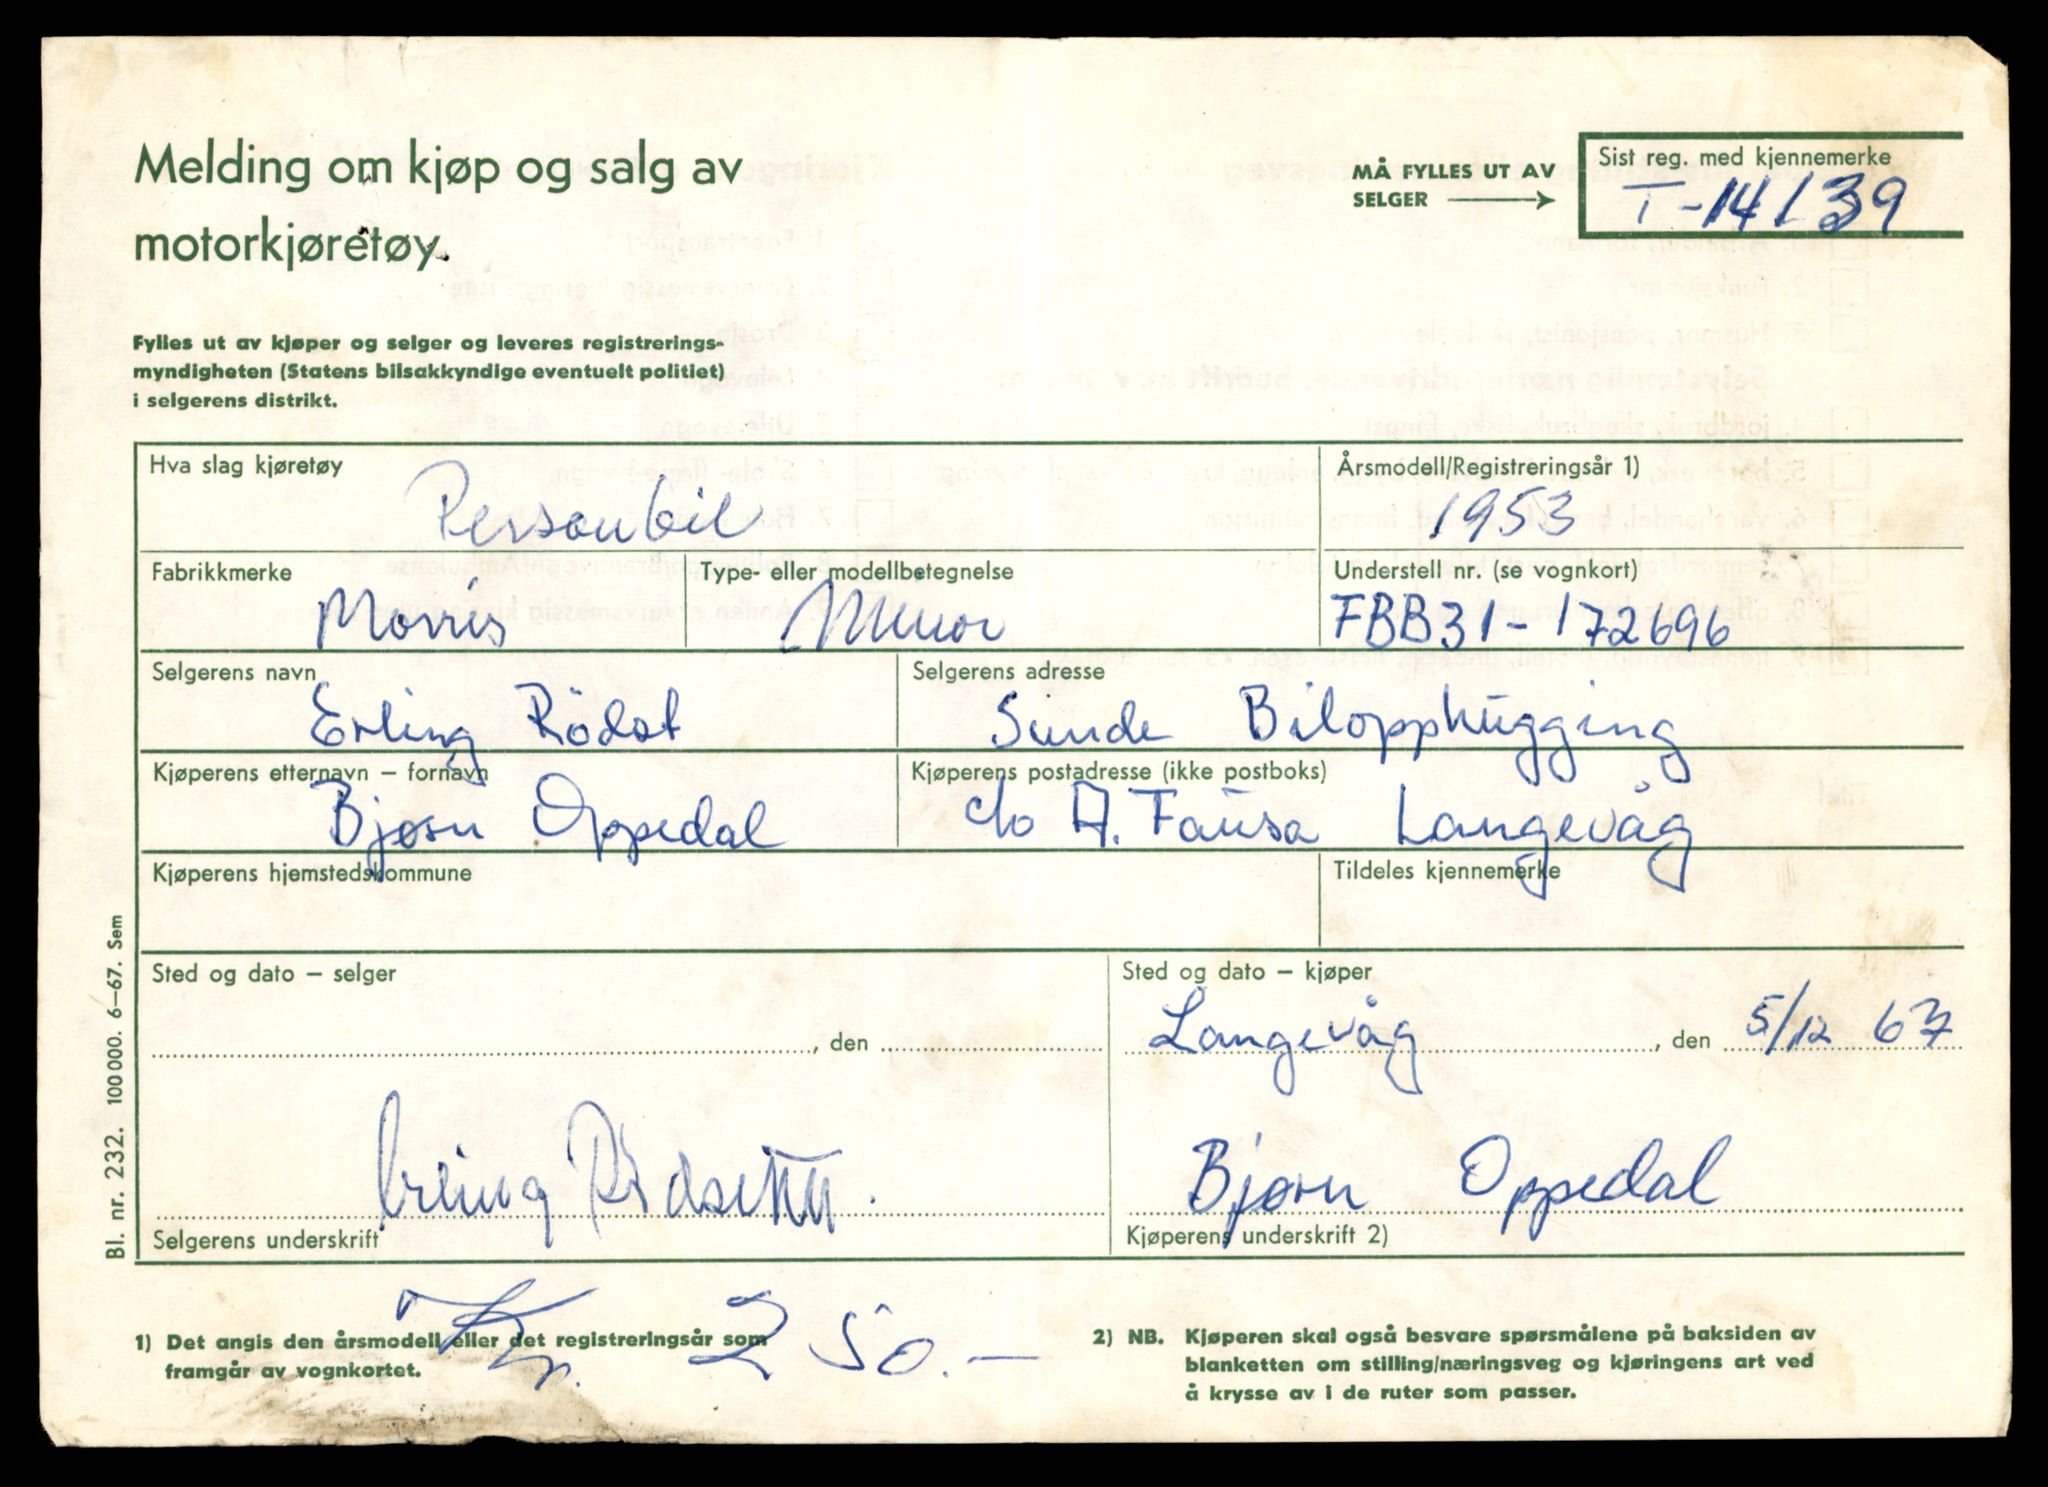 Melding om kjøp og salg av
motorkjøretøy.
MÅ FYLLES UT AV
SELGER
Sist reg. med kjennemerke
T-14139
Fylles ut av kjøper og selger og leveres registrerings-
myndigheten (Statens bilsakkyndige eventuelt politiet)
i selgerens distrikt.
Hva slag kjøretøy
Personbil
Årsmodell/Registreringsår 1)
1953
Fabrikkmerke
Morris
Type- eller modellbetegnelse
Minor
Understell nr. (se vognkort)
FBB31-172696
Selgerens navn
Erling Rödst
Selgerens adresse
Sunde Bilopphugging
Kjøperens etternavn – fornavn
Bjørn Oppedal
Kjøperens postadresse (ikke postboks)
c/o A. Fausa Langevåg
Kjøperens hjemstedskommune
Tildeles kjennemerke
Sted og dato – selger
, den
Sted og dato – kjøper
Langevåg, den 5/12 67
Erling Rödsett.
Selgerens underskrift
Bjørn Oppedal
Kjøperens underskrift 2)
Kr. 250.—
1) Det angis den årsmodell eller det registreringsår som
framgår av vognkortet.
2) NB. Kjøperen skal også besvare spørsmålene på baksiden av
blanketten om stilling/næringsveg og kjøringens art ved
å krysse av i de ruter som passer.
Bl. nr. 232. 100 000. 6–67. Sem